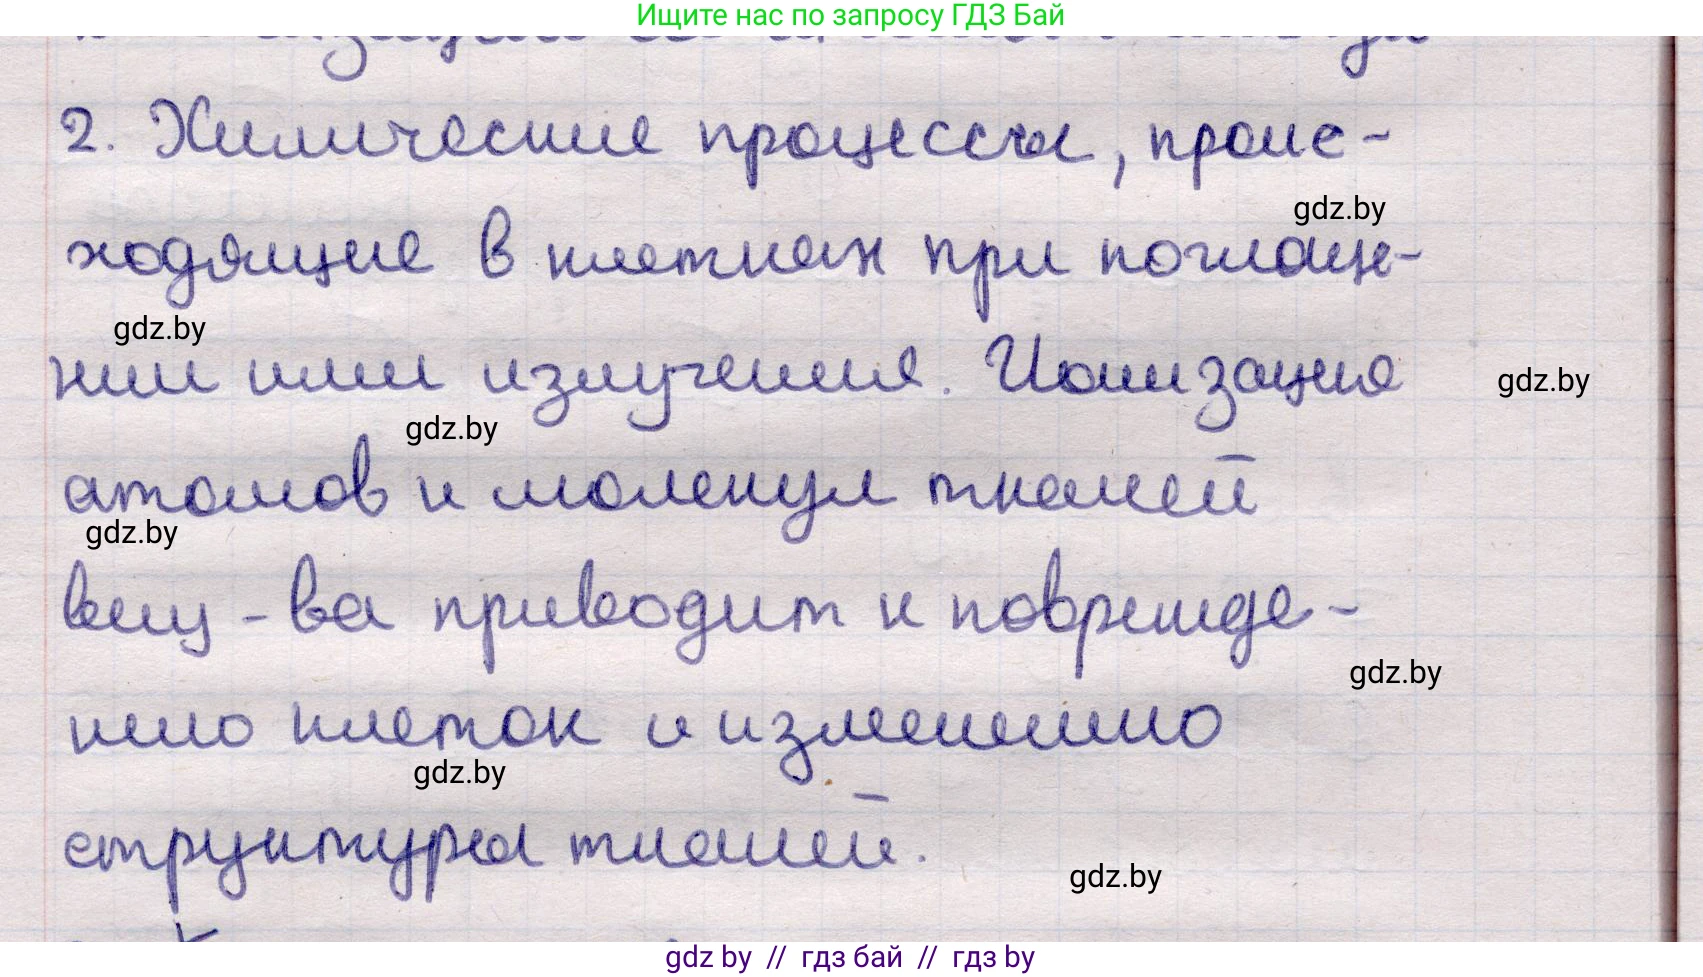 Ищите нас по запросу ГДЗ Бай
2. Химические процессы, проис-
gdz.by
ходящие в клетках при поглаще-
gdz.by
нии ими излучения. Ионизация
gdz.by
gdz.by
атомов и молекул тканей
gdz.by
вещ-ва приводит к поврежде-
gdz.by
нию клеток и изменению
gdz.by
структуры тканей.
gdz.by
gdz by // гдз бай // гдз by